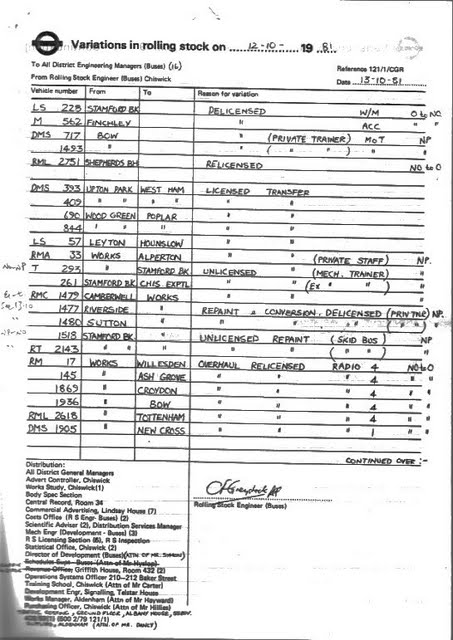 Variations in rolling stock on 12-10- 19 81.
To All District Engineering Managers (Buses) (16)
Reference 121/1/CGR
From Rolling Stock Engineer (Buses) Chiswick
Date 13-10-81
Vehicle number From To Reason for variation
LS 228 STAMFORD BK. DELICENSED W/M O to NO
M 562 FINCHLEY " ACC " "
DMS 717 BOW " (PRIVATE TRAINER) MOT NP
1493 " " ( " " ) " "
RML 2751 SHEPHERDS BH RELICENSED NO to O
DMS 393 UPTON PARK WEST HAM LICENSED TRANSFER
409 " " " " "
690 WOOD GREEN POPLAR " "
844 " " " " "
LS 57 LEYTON HOUNSLOW " "
RMA 33 WORKS ALPERTON " " (PRIVATE STAFF) NP.
T 293 " STAMFORD BK. UNLICENSED " (MECH. TRAINER) "
261 STAMFORD BK. CHIS. EXPTL " " (Ex " " ) "
RMC 1479 CAMBERWELL WORKS " "
1477 RIVERSIDE " REPAINT & CONVERSION, DELICENSED (PRIV TNR) NP.
1480 SUTTON " " " " " "
1518 STAMFORD BK. " UNLICENSED REPAINT (SKID BUS) NP
RT 2143 " " " " " " "
RM 17 WORKS WILLESDEN OVERHAUL RELICENSED RADIO 4 NO to O
145 " ASH GROVE " " " 4 "
1869 " CROYDON " " " 4 "
1936 " BOW " " " 4 "
RML 2618 " TOTTENHAM " " " 4 "
DMS 1905 " NEW CROSS " " " 1 "
CONTINUED OVER :-
Distribution:
All District General Managers
Advert Controller, Chiswick
Works Study, Chiswick(1)
Body Spec Section
Central Record, Room 34
Commercial Advertising, Lindsay House (7)
Costs Office (R S Engr- Buses) (2)
Scientific Adviser (2), Distribution Services Manager
Mech Engr (Development - Buses) (3)
R S Licensing Section (6), R S Inspection
Statistical Office, Chiswick (2)
Director of Development (Buses)(ATTN OF MR. SIMMONS)
Schedules Supt - Buses (Attn of Mr Hyslop)
Revenue Office, Griffith House, Room 432 (2)
Operations Systems Officer 210-212 Baker Street
Training School, Chiswick (Attn of Mr Carter)
Development Engr, Signalling, Telstar House
Works Manager, Aldenham (Attn of Mr Hayward)
Purchasing Officer, Chiswick (Attn of Mr Hillies)
GROUND FLOOR, ALBANY HOUSE,
(800 2/79 121/1)
ALDENHAM (ATTN. OF MR.
Rolling Stock Engineer (Buses)